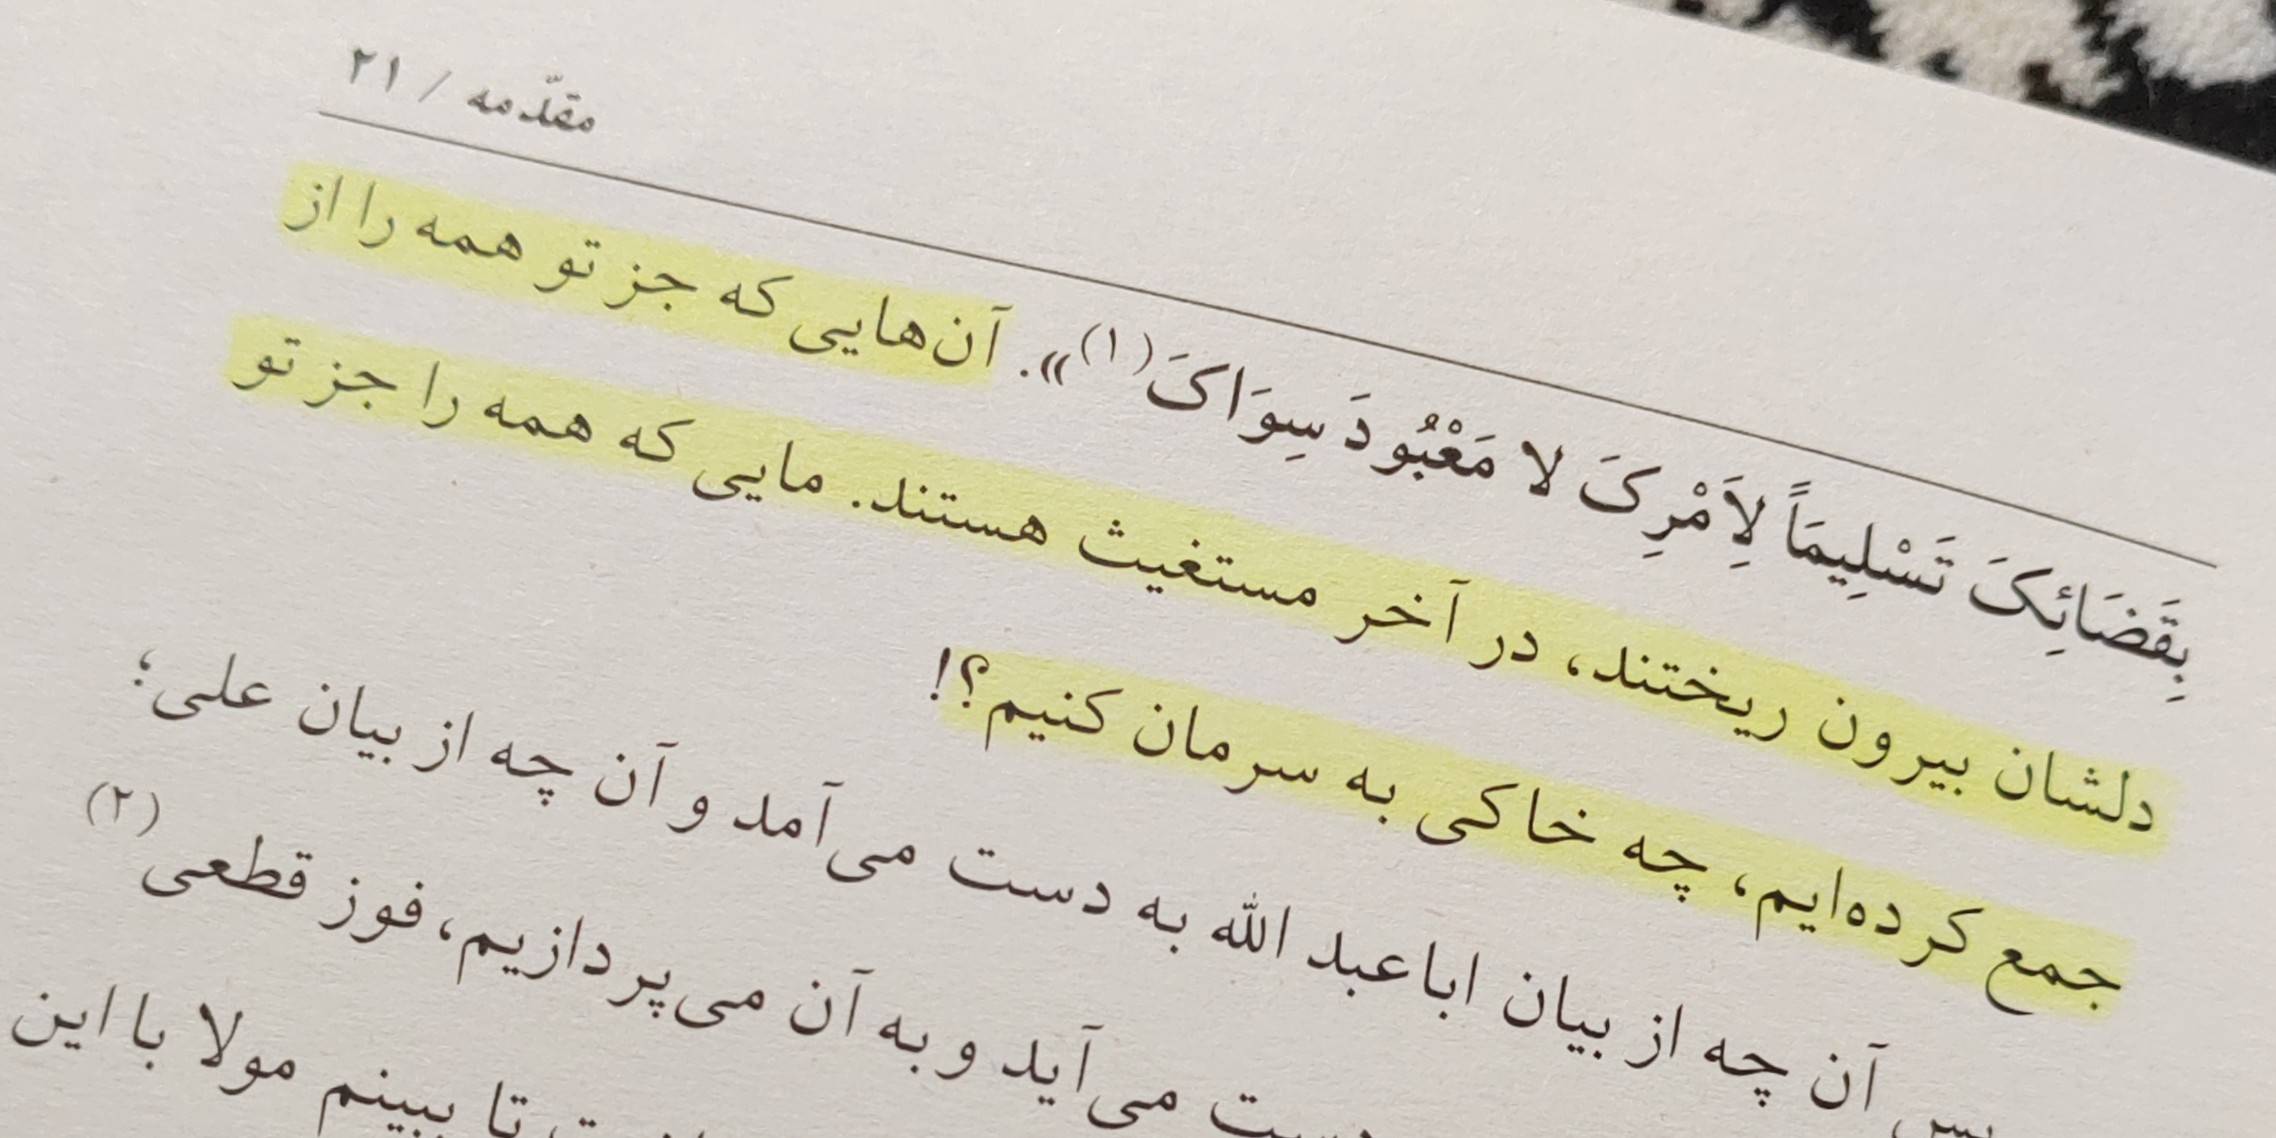 مقدّمه / ۲۱
بِقَضَائِکَ تَسْلِیمَاً لِاَمْرِکَ لا مَعْبُودَ سِوَاکَ(۱)». آن‌هایی که جز تو همه را از
دلشان بیرون ریختند، در آخر مستغیث هستند. مایی که همه را جز تو
جمع کرده‌ایم، چه خاکی به سرمان کنیم؟!
پس آن چه از بیان اباعبد الله به دست می‌آمد و آن چه از بیان علی؛
دست می‌آید و به آن می‌پردازیم، فوز قطعی(۲)
تا ببینم مولا با این